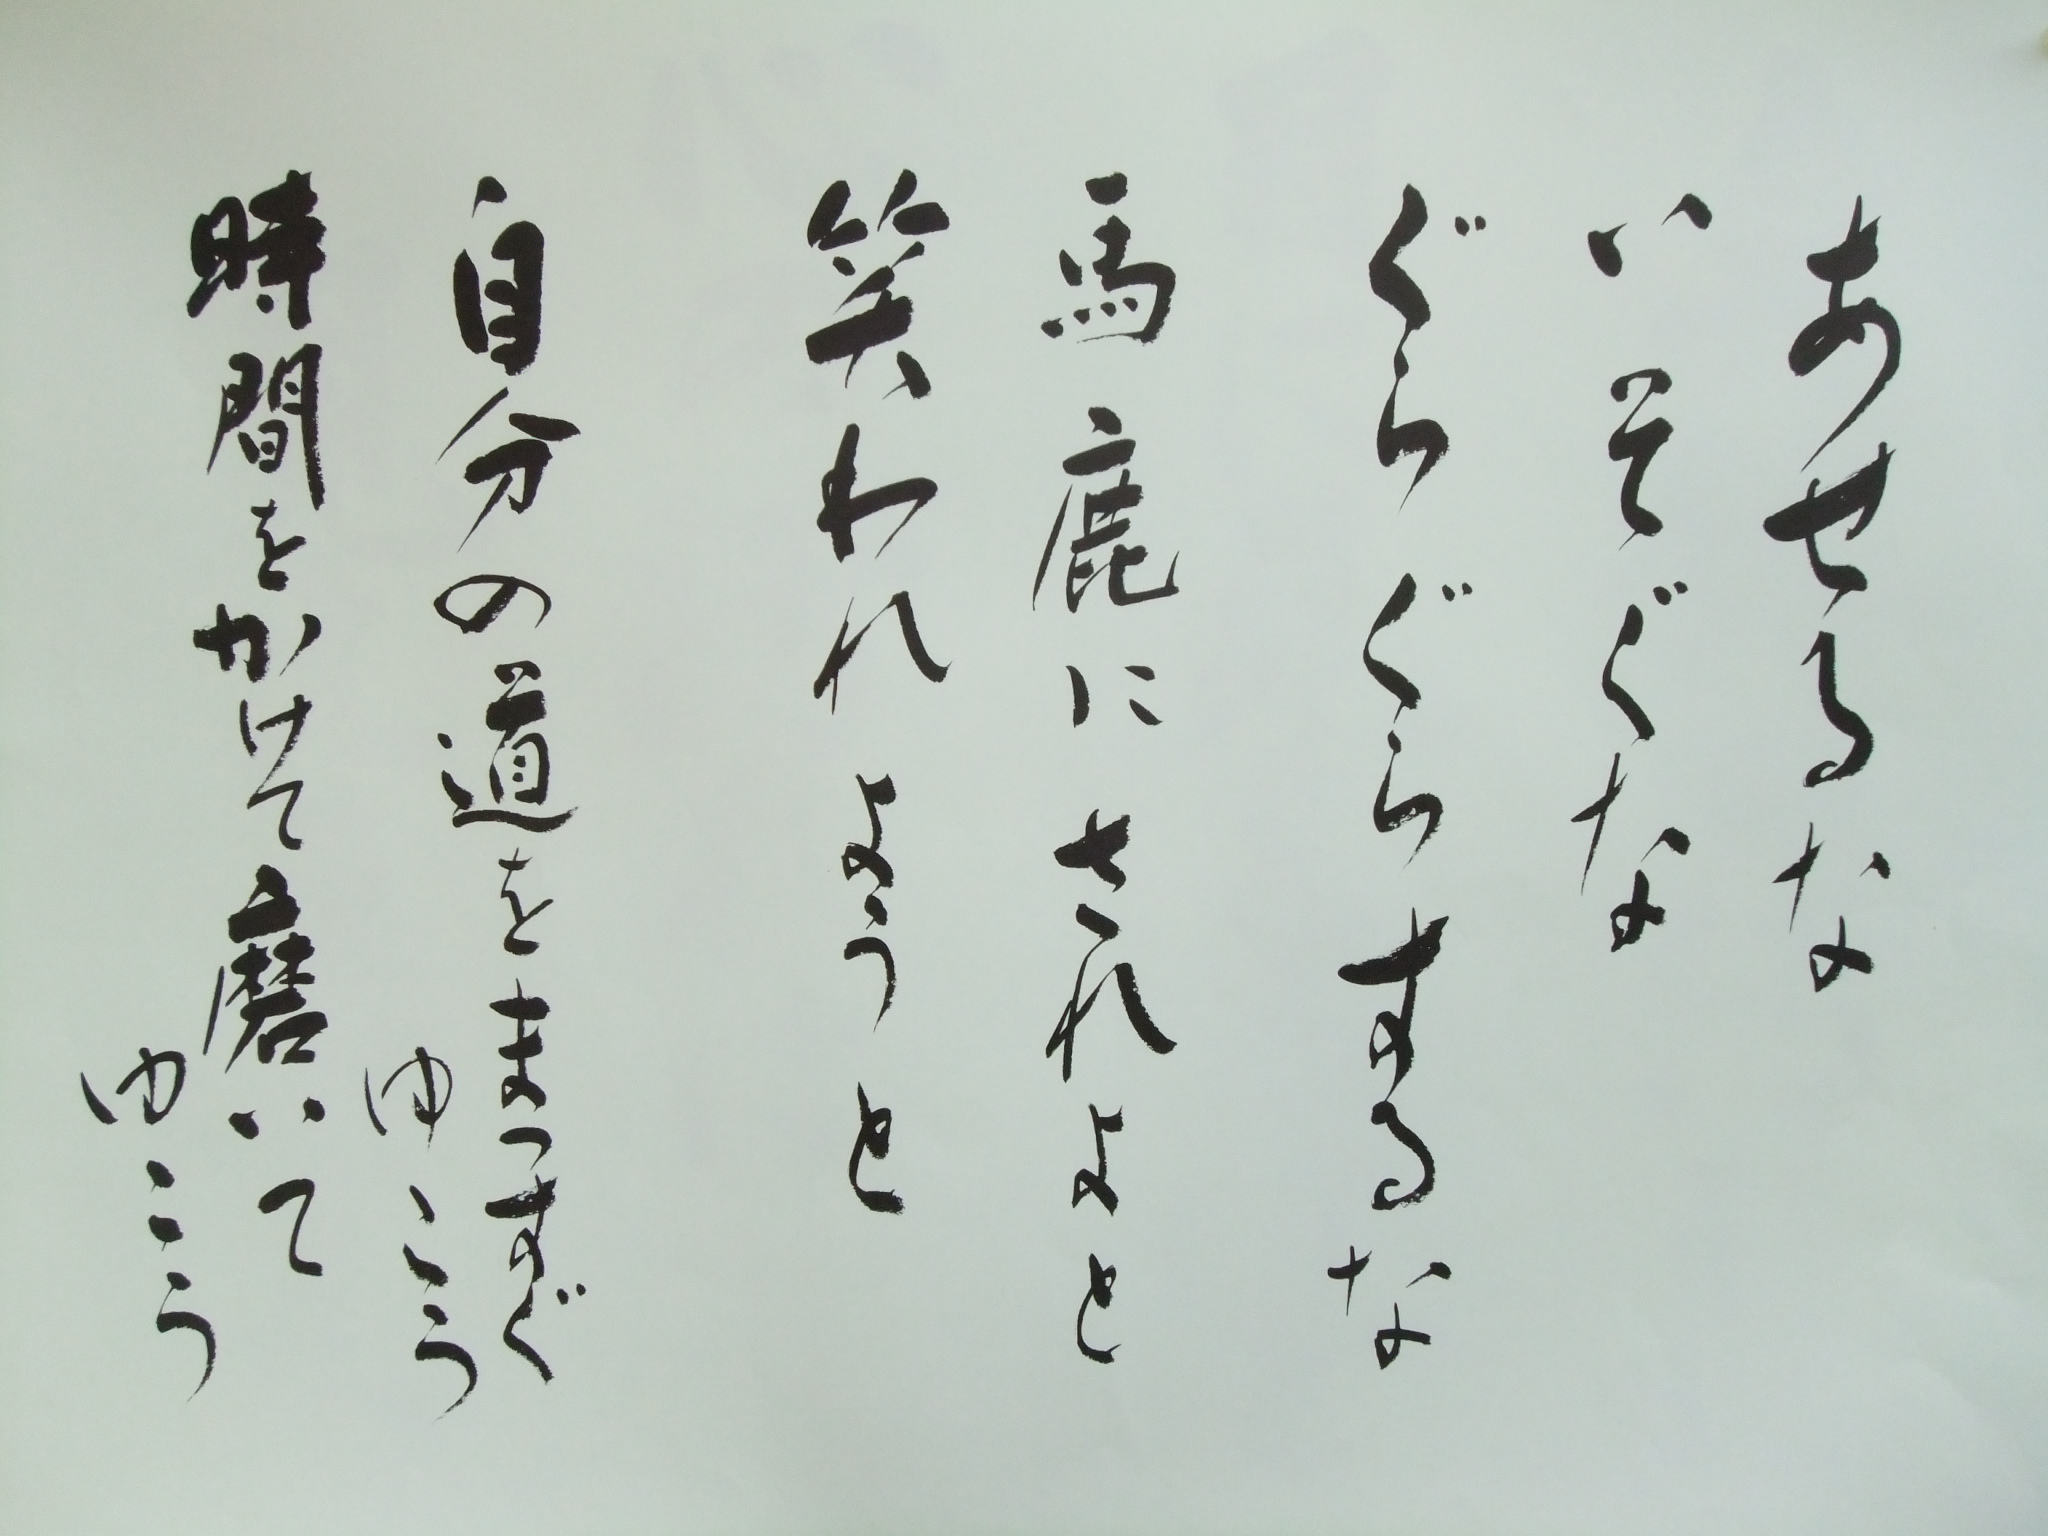 あせるな
いそぐな
ぐらぐらするな
馬鹿にされよと
笑われようと
自分の道をまっすぐ
ゆこう
時間をかけて磨いて
ゆこう